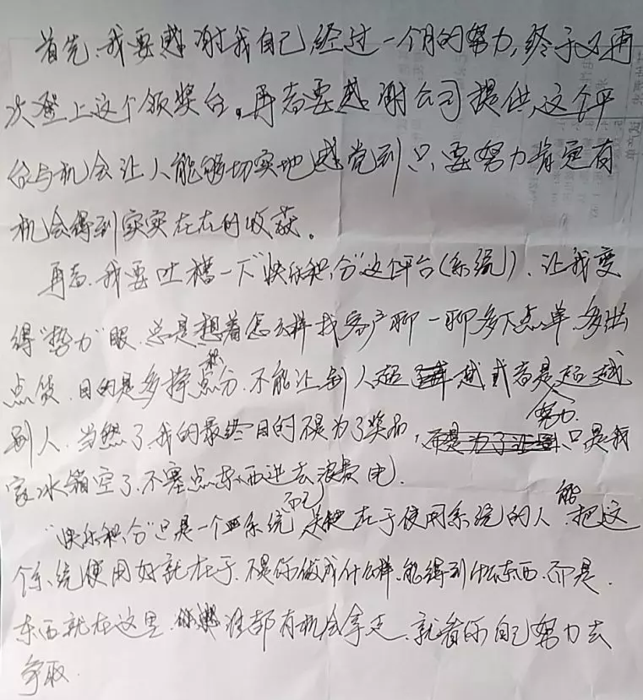 首先、我要感谢我自己,经过一个月的努力,终于又再
次登上这个领奖台。再者要感谢公司提供这个平
台与机会让人能够切实地感觉到只要努力肯定有
机会得到实实在在的收获。
再者、我要吐槽一下“快乐积分”这个平台(系统)、让我变
得“势力”眼、总是想着怎么样找客户聊一聊多下点单、多出
点货、目的是多挣点积分、不能让别人超越或者是努力超越
别人、当然了我的最终目的不是为了奖品,只是我
家冰箱空了、不塞点东西进去浪费电、
“快乐积分”只是一个系统而已关键在于使用系统的人能把这
个系统使用好就在于、不是你做成什么样、能得到什么东西、而是、
东西就在这里、谁都有机会拿走、就看你自己努力去
争取、